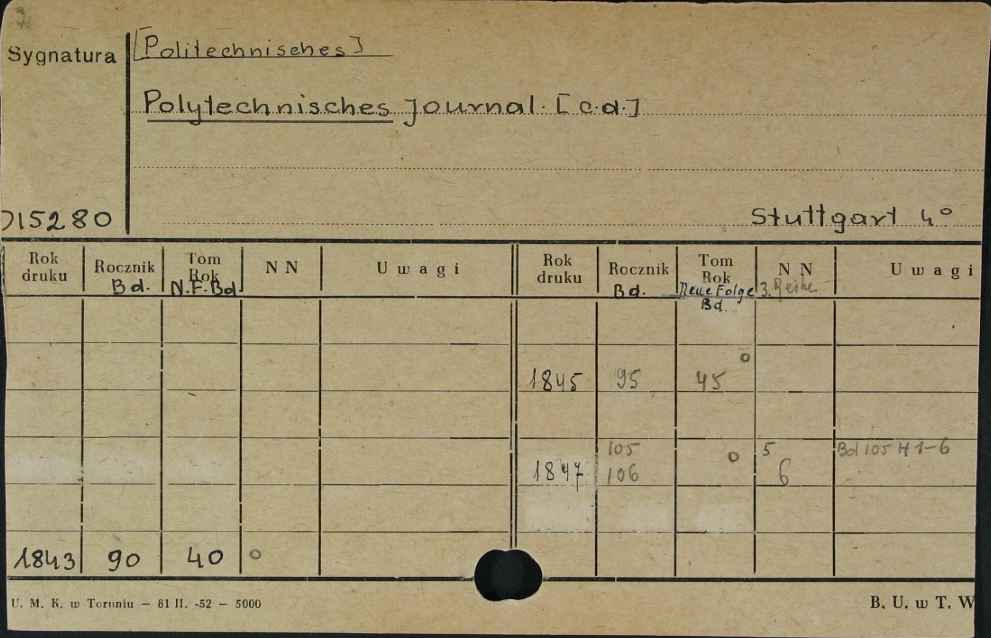 [Politechnisches]
Sygnatura
Polytechnisches Journal. [c.d.]
015280
Stuttgart 4°
Rok druku Rocznik Bd. Tom Rok N.F. Bd. NN Uwagi Rok druku Rocznik Bd. Tom Rok Neue Folge Bd. NN 3. Reihe Uwagi
1845 95 45 o
105 5 Bd 105 H 1-6
1847 106 o 6
1843 90 40 o
U. M. K. w Toruniu — 81 II. -52 — 5000
B. U. w T. W